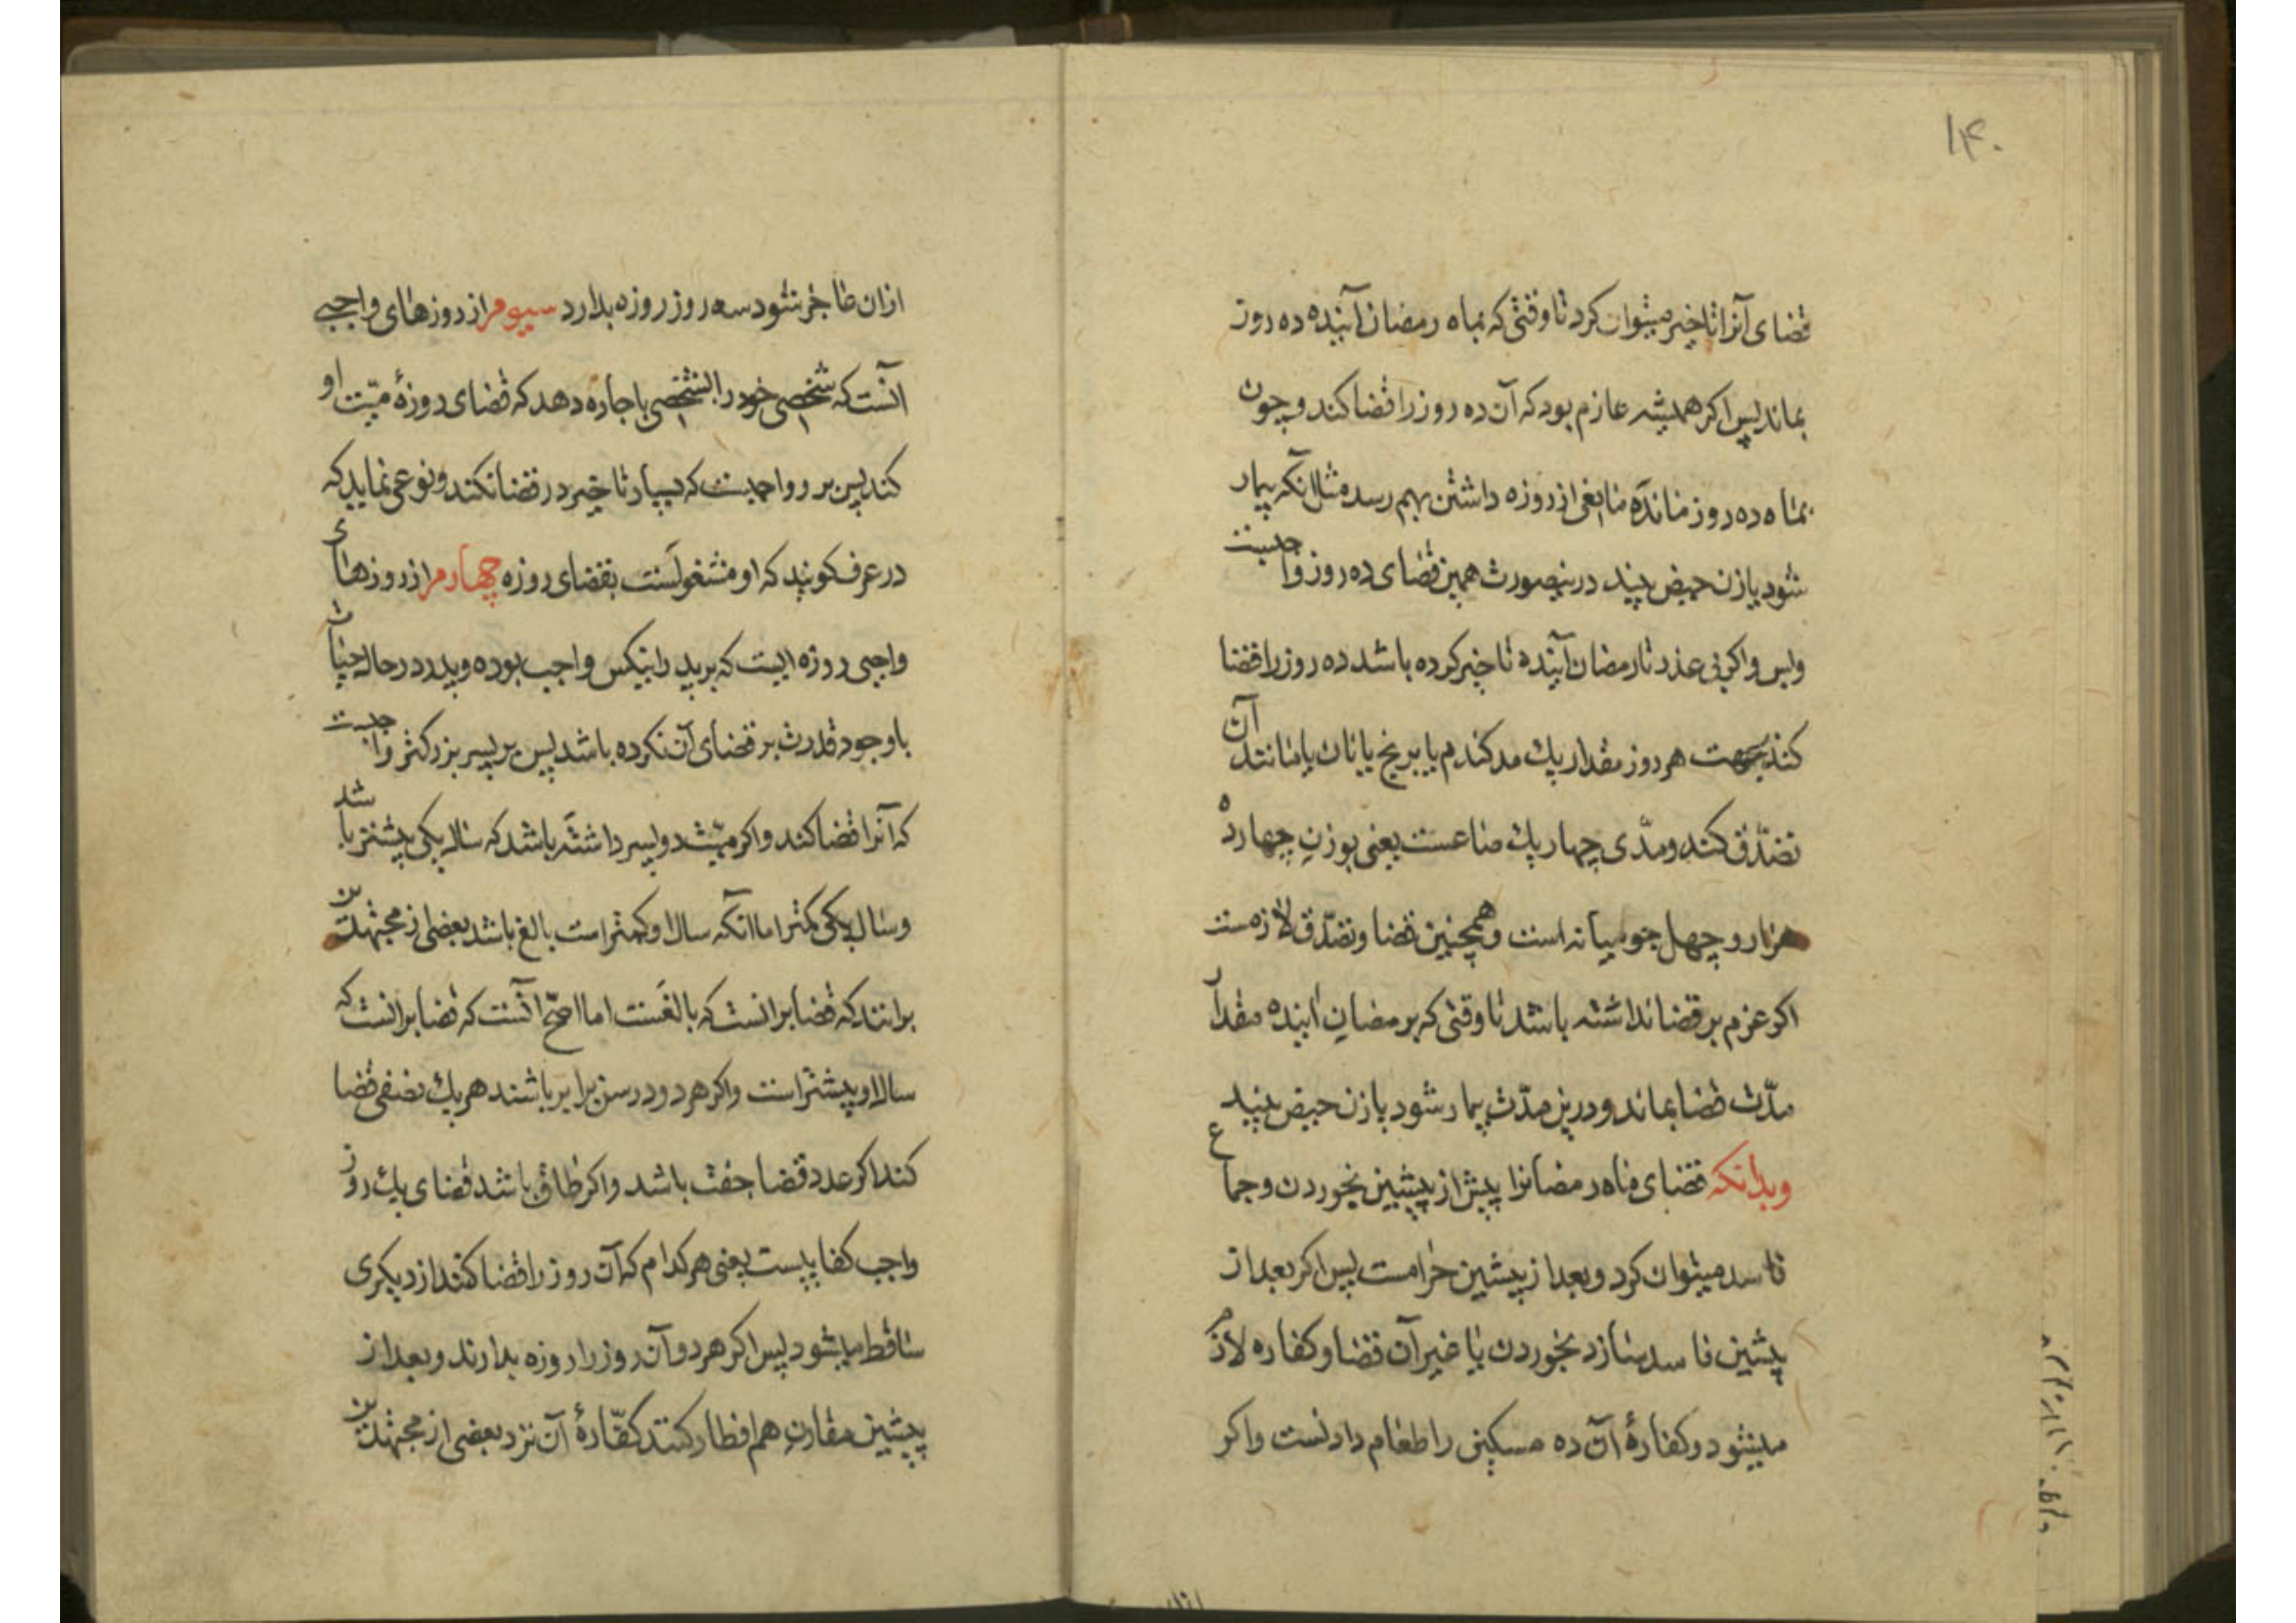 ۱۴۰
قضای آنرا تاخیر میتوان کرد تا وقتی که بماه رمضان آینده ده روز
بماند پس اکر همیشه عازم بود که آن ده روز را قضا کند و چون
بماه ده روز مانده مانعی از روزه داشتن بهم رسد مثل انکه بیمار
شود یا زن حیض بیند درینصورت همین قضای ده روز واجبست
وبس واکر بی عذر تا رمضان آینده تاخیر کرده باشد ده روز را قضا
کند بجهت هر روز مقدار یك مد کندم یا برنج یا نان یا مانند آن
تصدّق کند و مدّی چهار یك صاعست یعنی بوزن چهارده
هزار و چهل جو میانه است و همچنین قضا و تصدّق لازمست
اکر عزم بر قضا نداشته باشد تا وقتی که برمضان اینده مقدار
مدّت قضا بماند و درین مدّت بیمار شود یا زن حیض بیند
وبدانکه قضای ماه رمضانرا پیش از پیشین بخوردن و جماع
فاسد میتوان کرد و بعد از پیشین حرامست پس اکر بعد از
پیشین فاسد سازد بخوردن یا غیر آن قضا و کفاره لازم
میشود و کفارهٔ آن ده مسکین را طعام دادنست واکر
ازان عاجز شود سه روز روزه بدارد سیوم از روزهای واجبی
آنست که شخصی خود را بشخصی باجاره دهد که قضای روزهٔ میّت او
کند پس برو واجبست که بسیار تاخیر در قضا نکند و نوعی نماید که
در عرف کویند که او مشغولست بقضای روزه چهارم از روزهای
واجبی روزه ایست که بر پدر اینکس واجب بوده و پدر در حال حیات
باوجود قدرت بر قضای آن نکرده باشد پس بر پسر بزرکتر واجبست
که آنرا قضا کند واکر میّت دو پسر داشته باشد که سال یکی پیشتر باشد
وسال یکی کمتر اما انکه سال او کمتر است بالغ باشد بعضی از مجتهدین
برانند که قضا برانست که بالغست اما اصحّ آنست که قضا برانست که
سال او پیشتر است واکر هر دو در سن برابر باشند هر یك نصفی قضا
کند اکر عدد قضا جفت باشد واکر طاق باشد قضای یك روز
واجب کفاییست یعنی هر کدام که آن روز را قضا کند از دیکری
ساقط میشود پس اکر هر دو آن روز را روزه بدارند و بعد از
پیشین مقارن هم افطار کنند کفّارهٔ آن نزد بعضی از مجتهدین